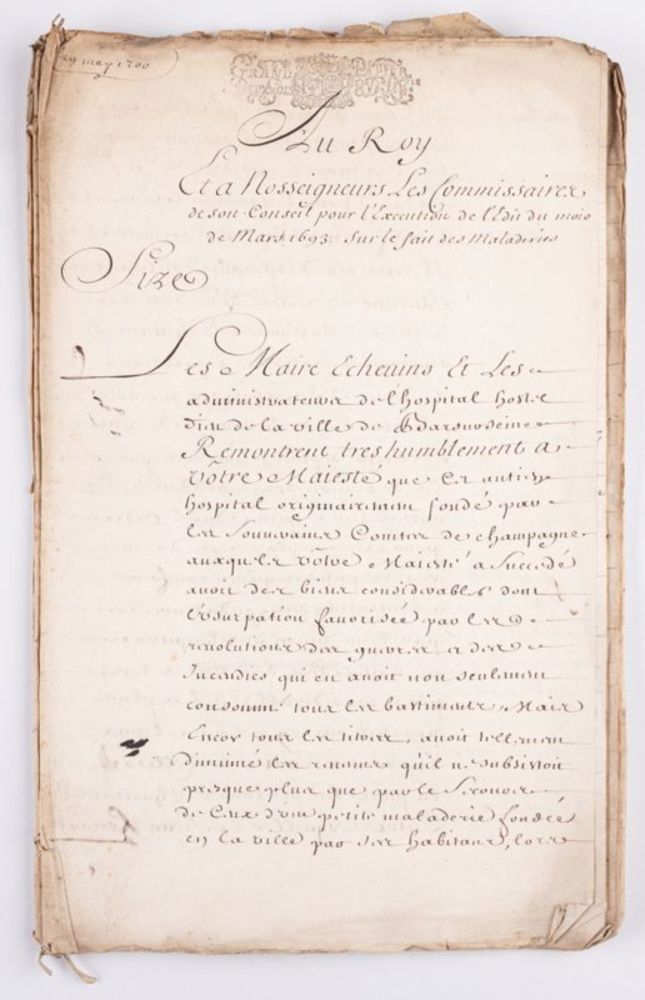 29 may 1700
GRAND PAPIER
Au Roy
Et a Nosseigneurs Les Commissaires
de son Conseil pour l'Execution de l'Edit du mois
de Mars 1693. Sur le fait des Maladeries
Sire
Les Maire Echevins Et Les
administrateurs de l'hospital hostel
dieu de la ville de Barsurseine
Remontrent tres humblement a
Vôtre Maiesté que Cet antien
hospital originairement fondé par
les Souverains Comtes de champagne
auxquels vôtre Maiesté a Succedé
avoit des biens considerables dont
l'Usurpation favorisée par les
revolutions des guerres et des
Incendies qui en avoit non seulement
consommé tous les bastiments, Mais
Encor tous les titres, avoit tellement
diminué les revenus qu'il ne subsistoit
presque plus que par le Secours
de Ceux d'une petite maladerie fondée
en la ville par ses habitans, lors